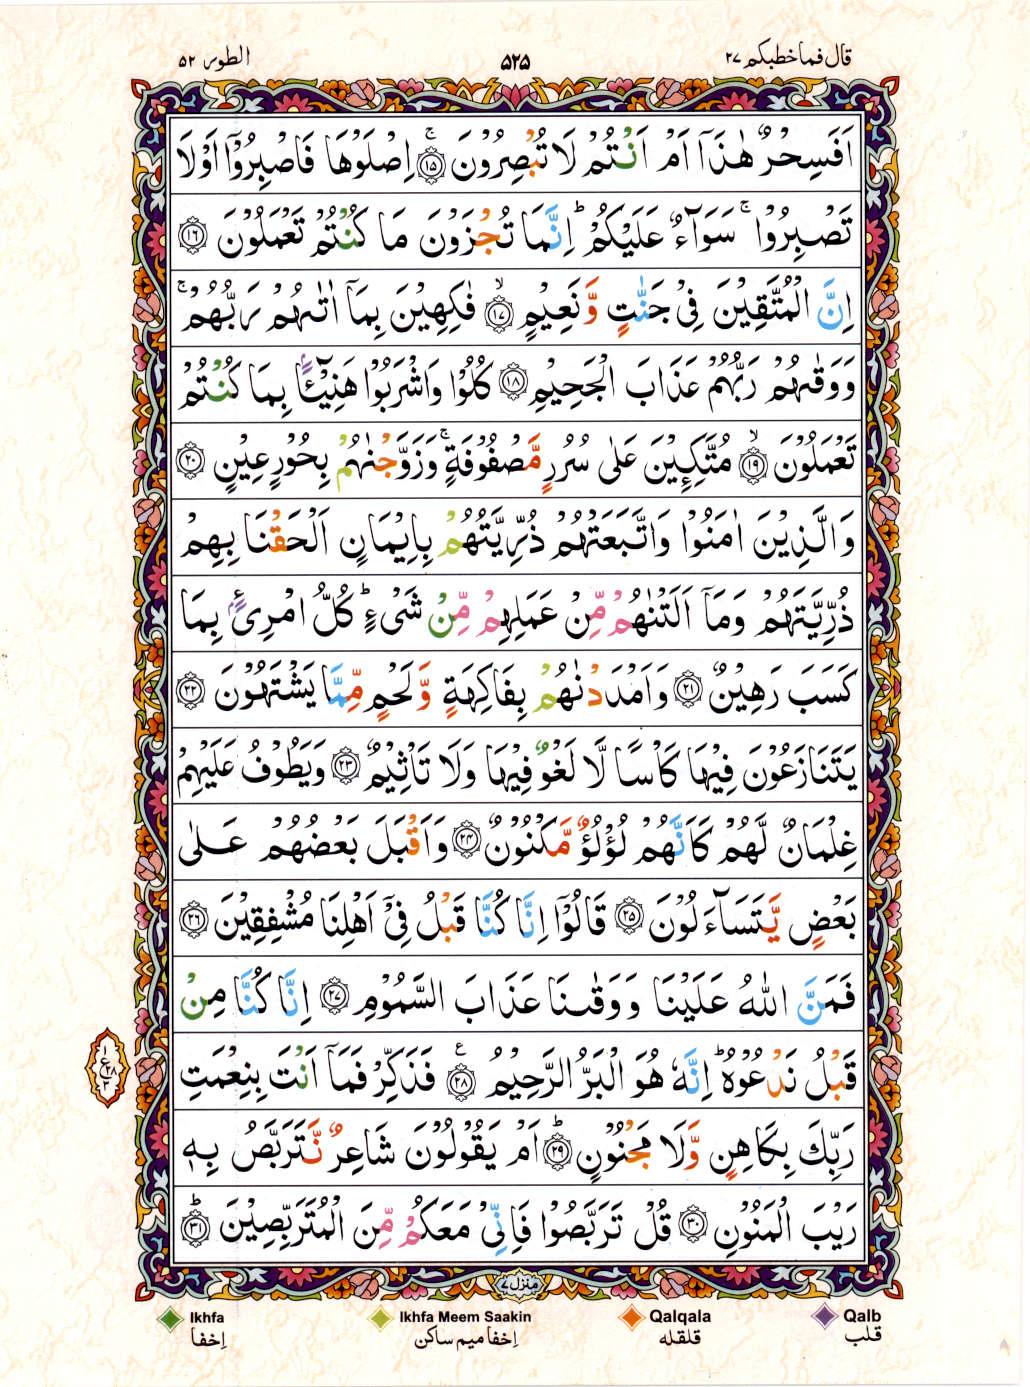 قال فما خطبكم ۲۷
۵۲۵
الطور ۵۲
اَفَسِحۡرٌ هٰذَاۤ اَمۡ اَنۡتُمۡ لَا تُبۡصِرُوۡنَ‌ۚ‏ ﴿۱۵﴾ اِصۡلَوۡهَا فَاصۡبِرُوۡۤا اَوۡ لَا
تَصۡبِرُوۡا‌ۚ سَوَآءٌ عَلَيۡكُمۡ‌ؕ اِنَّمَا تُجۡزَوۡنَ مَا كُنۡتُمۡ تَعۡمَلُوۡنَ‏ ﴿۱۶﴾
اِنَّ الۡمُتَّقِيۡنَ فِىۡ جَنّٰتٍ وَّنَعِيۡمٍۙ‏ ﴿۱۷﴾ فٰكِهِيۡنَ بِمَاۤ اٰتٰٮهُمۡ رَبُّهُمۡ‌ۚ
وَوَقٰٮهُمۡ رَبُّهُمۡ عَذَابَ الۡجَحِيۡمِ‏ ﴿۱۸﴾ كُلُوۡا وَاشۡرَبُوۡا هَنِيۡٓـئًا ۢ بِمَا كُنۡتُمۡ
تَعۡمَلُوۡنَۙ‏ ﴿۱۹﴾ مُتَّكِـئِيۡنَ عَلٰى سُرُرٍ مَّصۡفُوۡفَةٍ‌ ۚ وَزَوَّجۡنٰهُمۡ بِحُوۡرٍ عِيۡنٍ‏ ﴿۲۰﴾
وَالَّذِيۡنَ اٰمَنُوۡا وَاتَّبَعَتۡهُمۡ ذُرِّيَّتُهُمۡ بِاِيۡمَانٍ اَلۡحَـقۡنَا بِهِمۡ
ذُرِّيَّتَهُمۡ وَمَاۤ اَلَـتۡنٰهُمۡ مِّنۡ عَمَلِهِمۡ مِّنۡ شَىۡءٍ‌ؕ كُلُّ امۡرِیٴٍۢ بِمَا
كَسَبَ رَهِيۡنٌ‏ ﴿۲۱﴾ وَاَمۡدَدۡنٰهُمۡ بِفَاكِهَةٍ وَّلَحۡمٍ مِّمَّا يَشۡتَهُوۡنَ‏ ﴿۲۲﴾
يَتَـنَازَعُوۡنَ فِيۡهَا كَاۡسًا لَّا لَغۡوٌ فِيۡهَا وَلَا تَاۡثِيۡمٌ‏ ﴿۲۳﴾ وَيَطُوۡفُ عَلَيۡهِمۡ
غِلۡمَانٌ لَّهُمۡ كَاَنَّهُمۡ لُـؤۡلُـؤٌ مَّكۡنُوۡنٌ‏ ﴿۲۴﴾ وَاَقۡبَلَ بَعۡضُهُمۡ عَلٰى
بَعۡضٍ يَّتَسَآءَلُوۡنَ‏ ﴿۲۵﴾ قَالُـوۡۤا اِنَّا كُـنَّا قَبۡلُ فِىۡۤ اَهۡلِنَا مُشۡفِقِيۡنَ‏ ﴿۲۶﴾
فَمَنَّ اللّٰهُ عَلَيۡنَا وَوَقٰٮنَا عَذَابَ السَّمُوۡمِ‏ ﴿۲۷﴾ اِنَّا كُـنَّا مِنۡ
قَبۡلُ نَدۡعُوۡهُ‌ؕ اِنَّهٗ هُوَ الۡبَـرُّ الرَّحِيۡمُ‏ ﴿۲۸﴾ فَذَكِّرۡ فَمَاۤ اَنۡتَ بِنِعۡمَتِ
رَبِّكَ بِكَاهِنٍ وَّلَا مَجۡنُوۡنٍؕ‏ ﴿۲۹﴾ اَمۡ يَقُوۡلُوۡنَ شَاعِرٌ نَّتَـرَبَّصُ بِهٖ
رَيۡبَ الۡمَنُوۡنِ‏ ﴿۳۰﴾ قُلۡ تَرَبَّصُوۡا فَاِنِّىۡ مَعَكُمۡ مِّنَ الۡمُتَـرَبِّصِيۡنَؕ‏ ﴿۳۱﴾
منزل ۷
Ikhfa
اِخفا
Ikhfa Meem Saakin
اِخفا میم ساکن
Qalqala
قلقله
Qalb
قلب